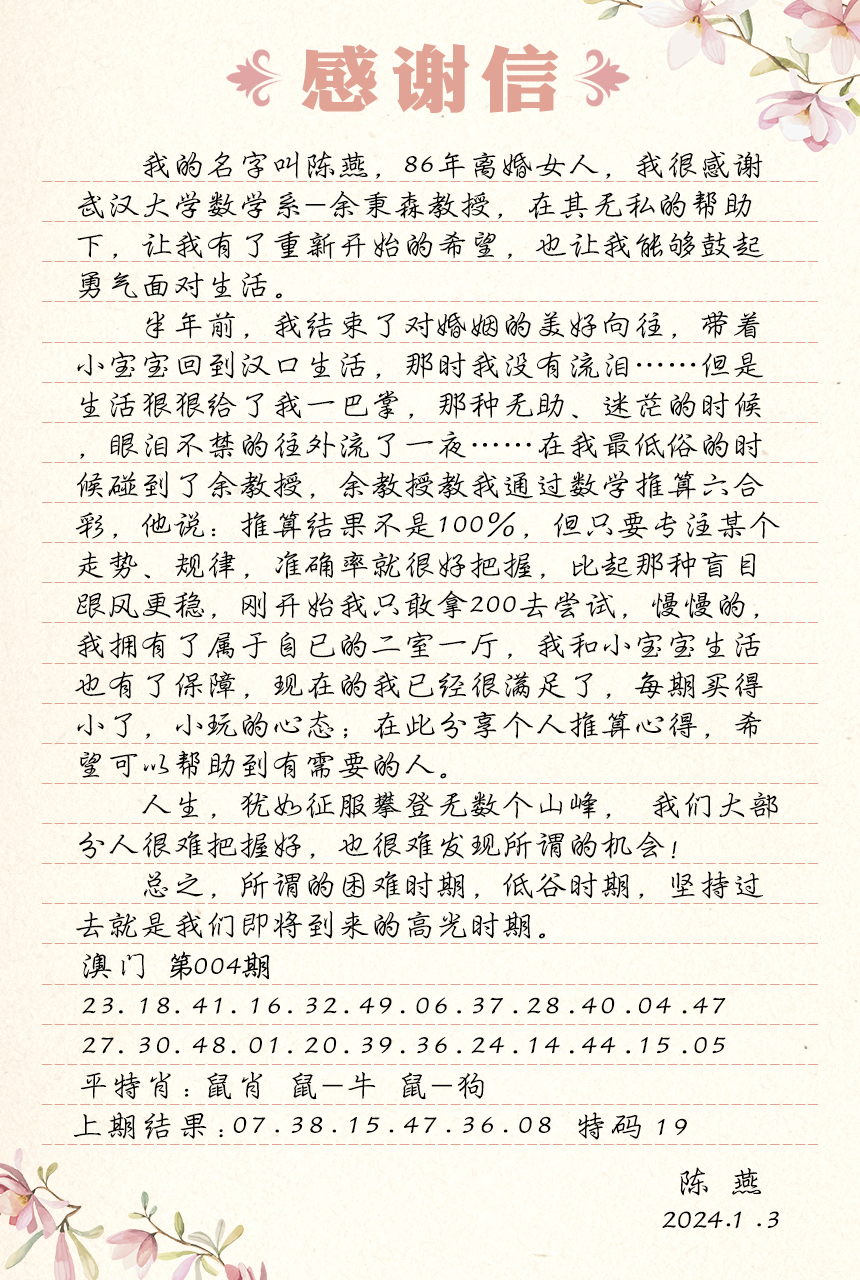 感谢信
我的名字叫陈燕，86年离婚女人，我很感谢
武汉大学数学系—余秉森教授，在其无私的帮助
下，让我有了重新开始的希望，也让我能够鼓起
勇气面对生活。
半年前，我结束了对婚姻的美好向往，带着
小宝宝回到汉口生活，那时我没有流泪……但是
生活狠狠给了我一巴掌，那种无助、迷茫的时候
，眼泪不禁的往外流了一夜……在我最低俗的时
候碰到了余教授，余教授教我通过数学推算六合
彩，他说：推算结果不是100%，但只要专注某个
走势、规律，准确率就很好把握，比起那种盲目
跟风更稳，刚开始我只敢拿200去尝试，慢慢的，
我拥有了属于自已的二室一厅，我和小宝宝生活
也有了保障，现在的我已经很满足了，每期买得
小了，小玩的心态；在此分享个人推算心得，希
望可以帮助到有需要的人。
人生，犹如征服攀登无数个山峰， 我们大部
分人很难把握好，也很难发现所谓的机会！
总之，所谓的困难时期，低谷时期，坚持过
去就是我们即将到来的高光时期。
澳门 第004期
23.18.41.16.32.49.06.37.28.40.04.47
27.30.48.01.20.39.36.24.14.44.15.05
平特肖：鼠肖 鼠—牛 鼠—狗
上期结果：07.38.15.47.36.08 特码 19
陈 燕
2024.1.3